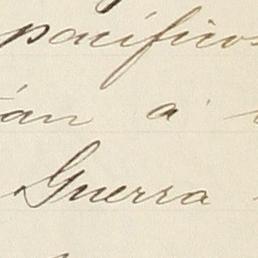 pacíficos
án a
Guerra